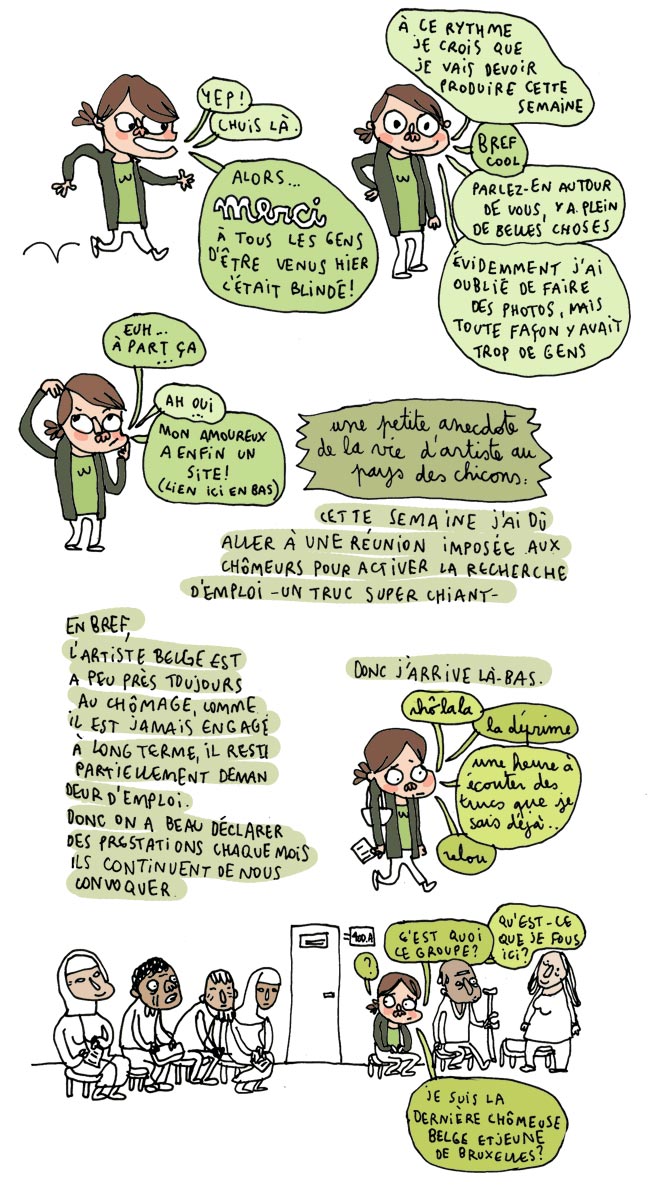 YEP!
CHUIS LÀ.
ALORS...
merci
À TOUS LES GENS
D'ÊTRE VENUS HIER
C'ÉTAIT BLINDÉ!
À CE RYTHME
JE CROIS QUE
JE VAIS DEVOIR
PRODUIRE CETTE
SEMAINE
BREF
COOL
PARLEZ-EN AUTOUR
DE VOUS, Y A PLEIN
DE BELLES CHOSES
ÉVIDEMMENT J'AI
OUBLIÉ DE FAIRE
DES PHOTOS, MAIS
TOUTE FAÇON Y AVAIT
TROP DE GENS
EUH...
À PART ÇA
...
AH OUI
MON AMOUREUX
A ENFIN UN
SITE!
(LIEN ICI EN BAS)
une petite anecdote
de la vie d'artiste au
pays des chicons:
CETTE SEMAINE J'AI DÛ
ALLER À UNE RÉUNION IMPOSÉE AUX
CHÔMEURS POUR ACTIVER LA RECHERCHE
D'EMPLOI -UN TRUC SUPER CHIANT-
EN BREF,
L'ARTISTE BELGE EST
A PEU PRÈS TOUJOURS
AU CHÔMAGE, COMME
IL EST JAMAIS ENGAGÉ
À LONG TERME, IL RESTE
PARTIELLEMENT DEMAN
DEUR D'EMPLOI.
DONC ON A BEAU DÉCLARER
DES PRESTATIONS CHAQUE MOIS
ILS CONTINUENT DE NOUS
CONVOQUER.
DONC J'ARRIVE LÀ-BAS.
rhôlala
la déprime
une heure à
écouter des
trucs que je
sais déjà..
relou
400.A
?
C'EST QUOI
CE GROUPE?
QU'EST-CE
QUE JE FOUS
ICI?
JE SUIS LA
DERNIÈRE CHÔMEUSE
BELGE ET JEUNE
DE BRUXELLES?